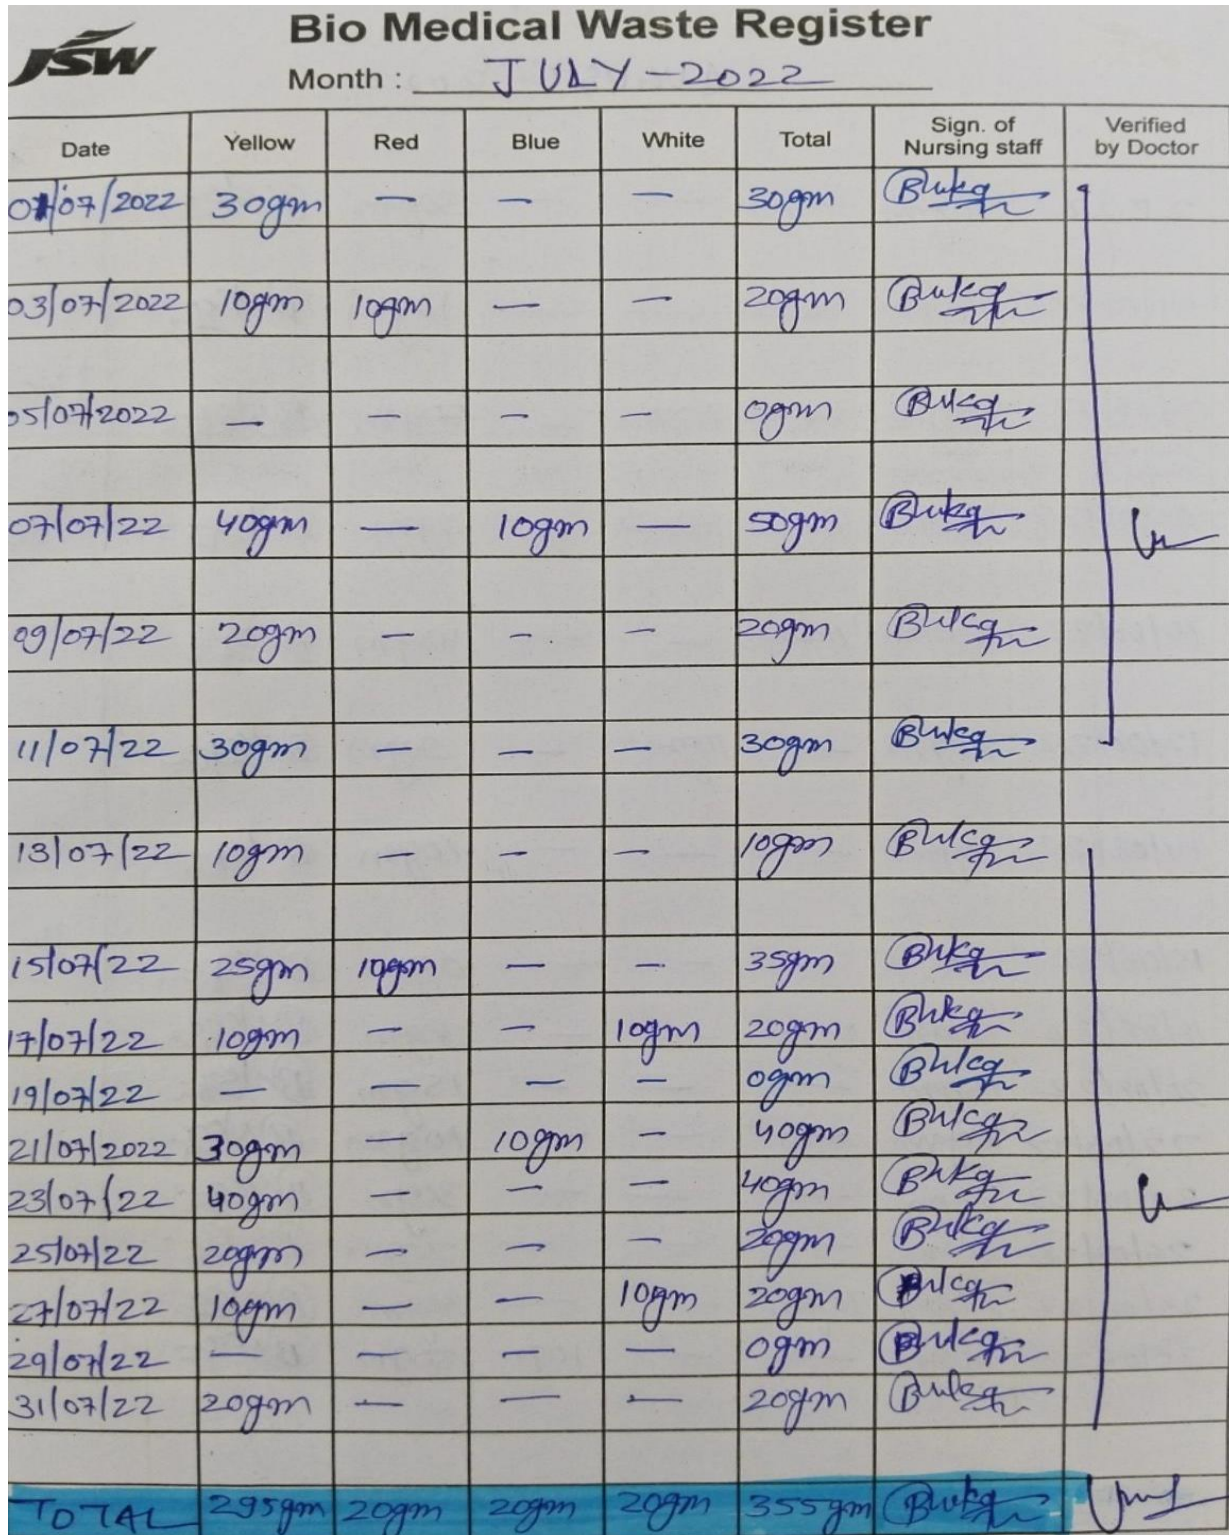 JSW
Bio Medical Waste Register
Month : JULY-2022
Date Yellow Red Blue White Total Sign. of Nursing staff Verified by Doctor
01/07/2022 30gm — — — 30gm
03/07/2022 10gm 10gm — — 20gm
05/07/2022 — — — — 0gm
07/07/22 40gm — 10gm — 50gm
09/07/22 20gm — — — 20gm
11/07/22 30gm — — — 30gm
13/07/22 10gm — — — 10gm
15/07/22 25gm 10gm — — 35gm
17/07/22 10gm — — 10gm 20gm
19/07/22 — — — — 0gm
21/07/2022 30gm — 10gm — 40gm
23/07/22 40gm — — — 40gm
25/07/22 20gm — — — 20gm
27/07/22 10gm — — 10gm 20gm
29/07/22 — — — — 0gm
31/07/22 20gm — — — 20gm
TOTAL 295gm 20gm 20gm 20gm 355gm